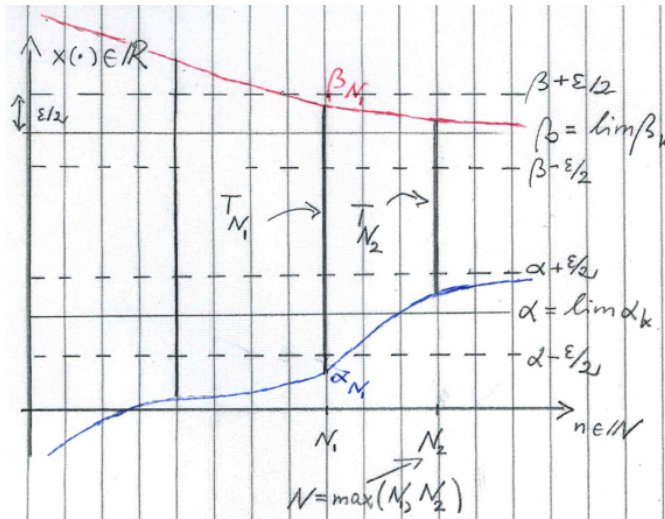 x(·) ∈ ℝ
β_N₁
β + ε/2
ε/2
β = lim β_k
β - ε/2
T_N₁
T_N₂
α + ε/2
α = lim α_k
α - ε/2
α_N₁
n ∈ ℕ
N₁
N₂
N = max(N₁, N₂)